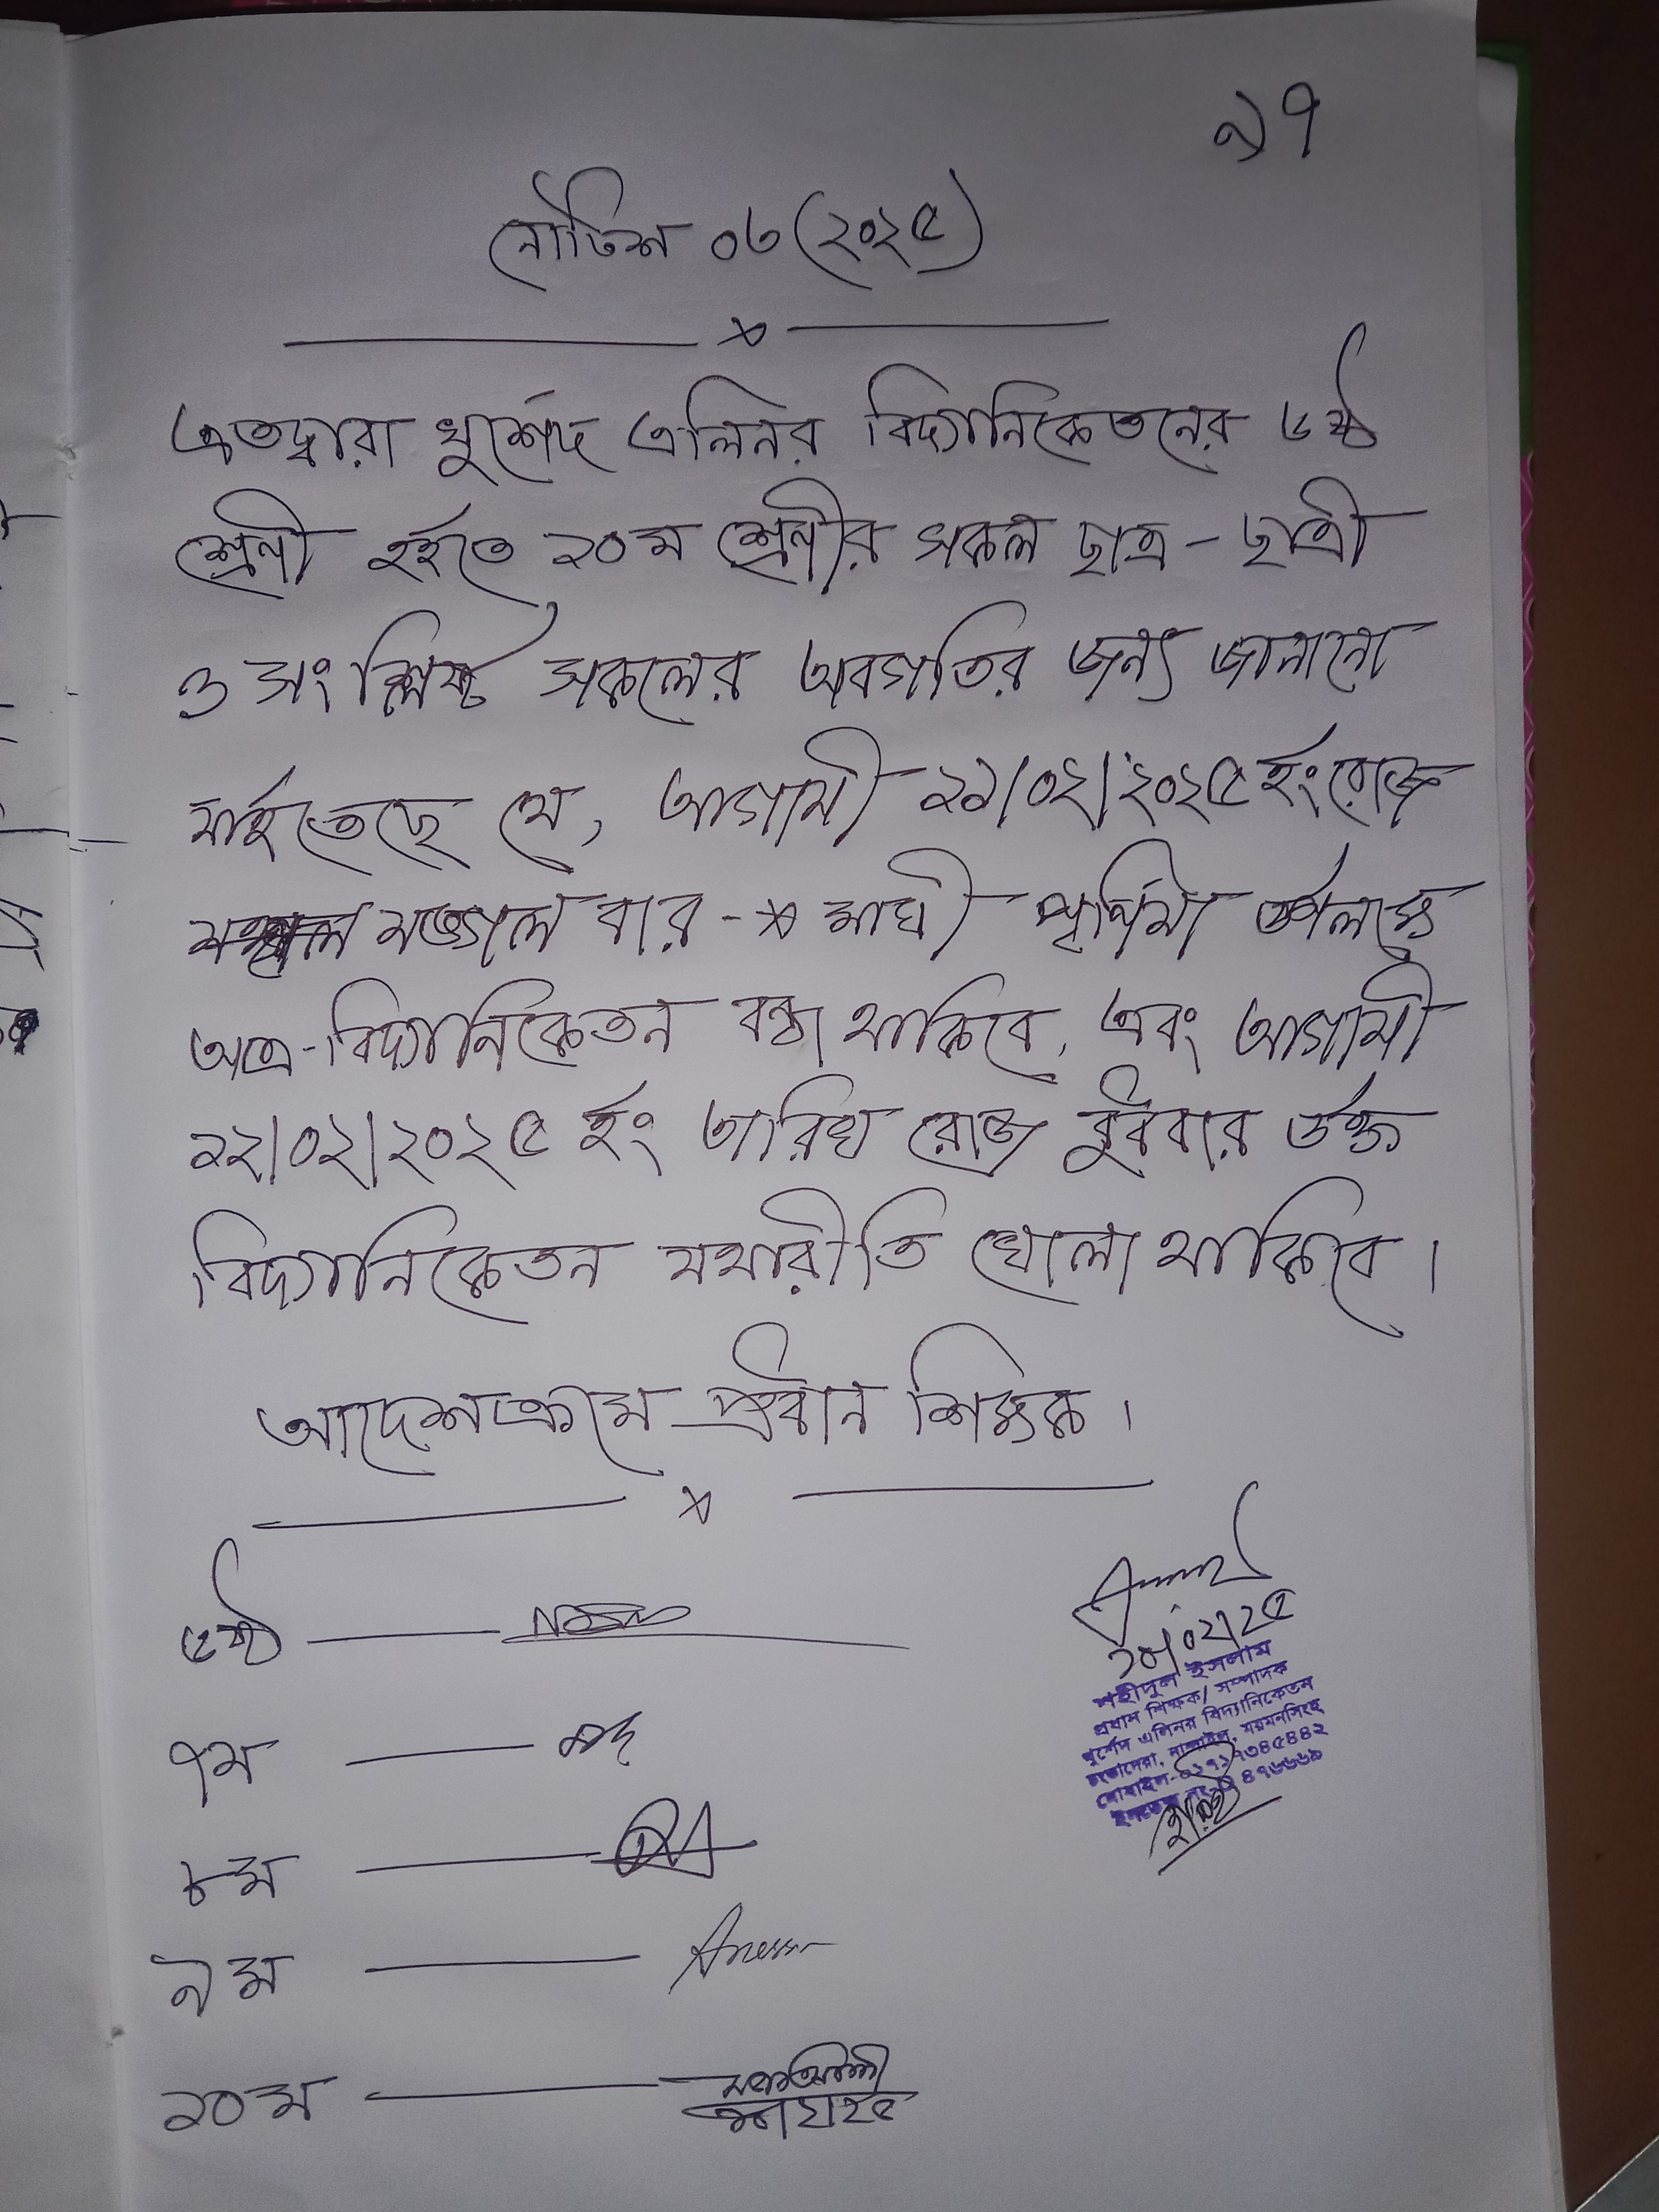 ১৭
নোটিশ ০৬ (২০২৫)
এতদ্বারা খুর্শেদ এলিনর বিদ্যানিকেতনের ৬ষ্ঠ
শ্রেণী হইতে ১০ম শ্রেণীর সকল ছাত্র-ছাত্রী
ও সংশ্লিষ্ট সকলের অবগতির জন্য জানানো
যাইতেছে যে, আগামী ১১/০২/২০২৫ ইং রোজ
মঙ্গল বার - মাঘী পূর্ণিমা উপলক্ষে
অত্র-বিদ্যানিকেতন বন্ধ থাকিবে, এবং আগামী
১২/০২/২০২৫ ইং তারিখ রোজ বুধবার উক্ত
বিদ্যানিকেতন যথারীতি খোলা থাকিবে।
আদেশক্রমে প্রধান শিক্ষক।
১০/০২/২৫
শহীদুল ইসলাম
প্রধান শিক্ষক/ সম্পাদক
খুর্শেদ এলিনর বিদ্যানিকেতন
নান্দাইল, ময়মনসিংহ
৬ষ্ঠ
৭ম
৮ম
৯ম
১০ম